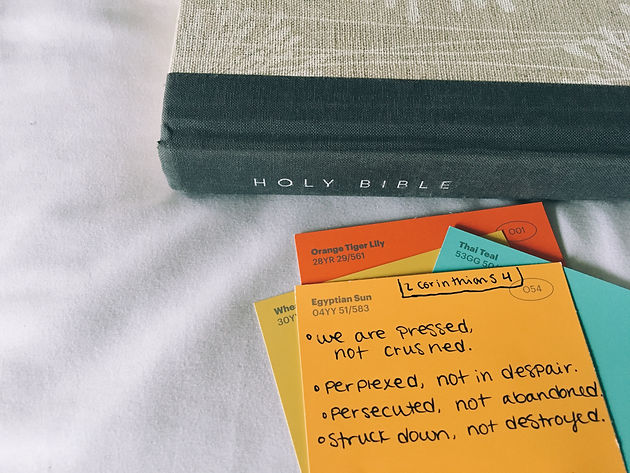 HOLY BIBLE
Orange Tiger Lily
28YR 29/561
001
Thai Teal
53GG
Egyptian Sun
04YY 51/583
2 corinthians 4
054
30YY
• we are pressed,
not crushed.
• perplexed, not in despair.
• persecuted, not abandoned.
• struck down, not destroyed.